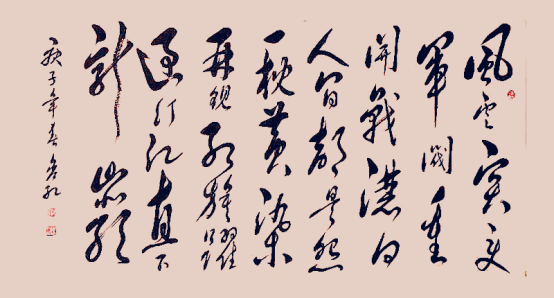 風雲突变
軍閥重
開戰灑向
人間都是怨
一枕黄粱
再現紅旗躍
過汀江直下
龍岩
庚子年春